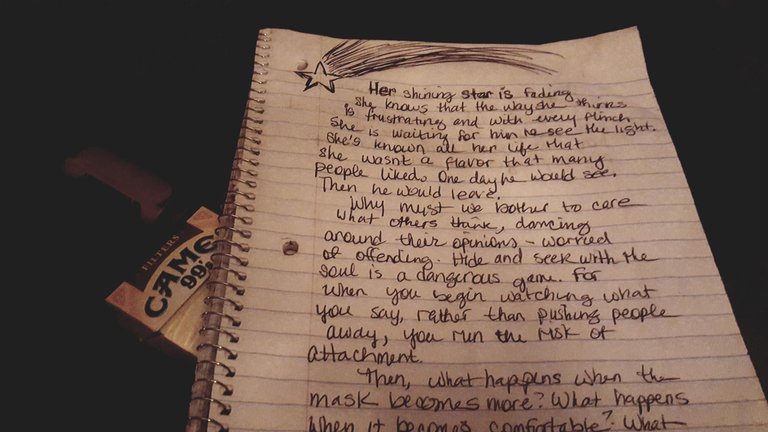 Her shining star is fading
She knows that the way she thinks
is frustrating and with every flinch
she is waiting for him to see the light.
She's known all her life that
She wasn't a flavor that many
people liked. One day he would see.
Then he would leave.
Why must we bother to care
what others think, dancing
around their opinions - worried
of offending. Hide and seek with the
soul is a dangerous game. For
when you begin watching what
you say, rather than pushing people
away, you run the risk of
attachment.
Then, what happens when the
mask becomes more? What happens
when it becomes comfortable? What
FILTERS
CAMEL
99's